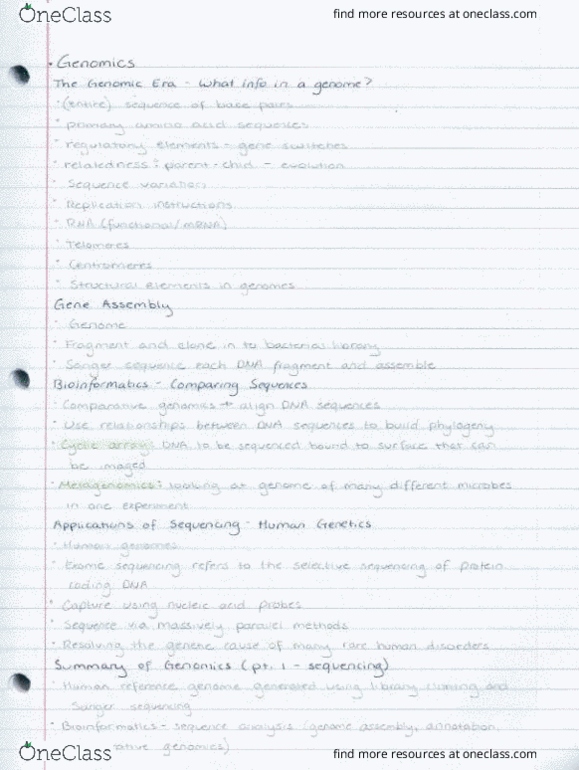 OneClass
find more resources at oneclass.com
· Genomics
The Genomic Era - what info in a genome?
· (entire) sequence of base pairs
· primary amino acid sequences
· regulatory elements - gene switches
· relatedness: parent-child - evolution
· Sequence variation
· Replication instructions
· RNA (functional/mRNA)
· Telomeres
· Centromeres
· Structural elements in genomes
Gene Assembly
· Genome
· Fragment and clone in to bacterial library
· Sanger sequence each DNA fragment and assemble
Bioinformatics - Comparing Sequences
· Comparative genomics → align DNA sequences
· Use relationships between DNA sequences to build phylogeny
· Cyclic array: DNA to be sequenced bound to surface that can
be imaged
· Metagenomics: looking at genome of many different microbes
in one experiment
Applications of Sequencing - Human Genetics
· Human genomes
· Exome sequencing refers to the selective sequencing of protein
coding DNA
· Capture using nucleic acid probes
· Sequence via massively parallel methods
· Resolving the genetic cause of many rare human disorders
Summary of Genomics (pt. 1 - sequencing)
· Human reference genome generated using library cloning and
Sanger sequencing
· Bioinformatics - sequence analysis (genome assembly, annotation,
ative genomics)
OneClass
find more resources at oneclass.com